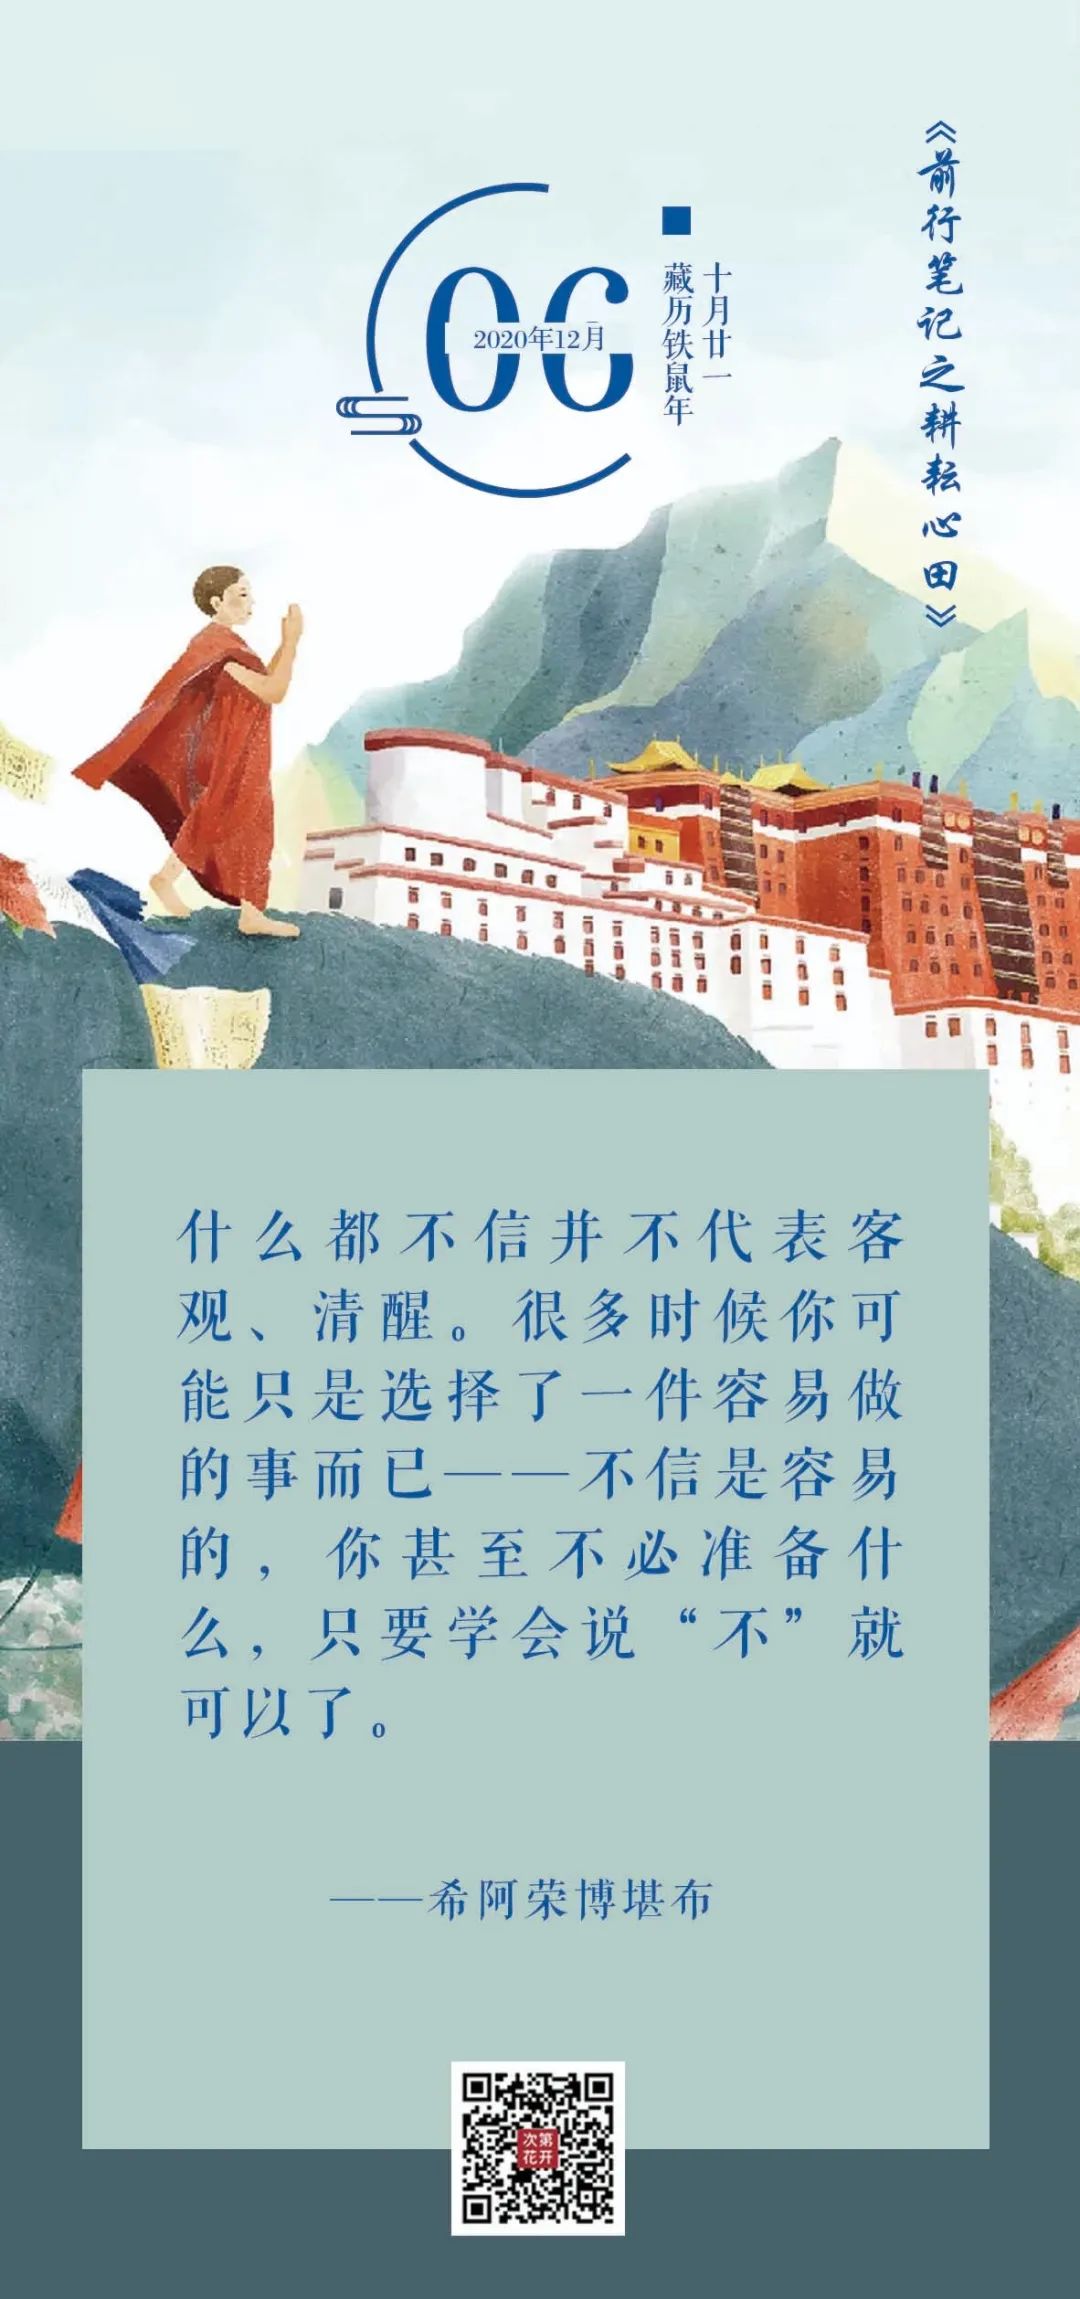 《前行笔记之耕耘心田》
06
2020年12月
十月廿一
藏历铁鼠年
什么都不信并不代表客
观、清醒。很多时候你可
能只是选择了一件容易做
的事而已——不信是容易
的，你甚至不必准备什
么，只要学会说“不”就
可以了。
——希阿荣博堪布
次第
花开